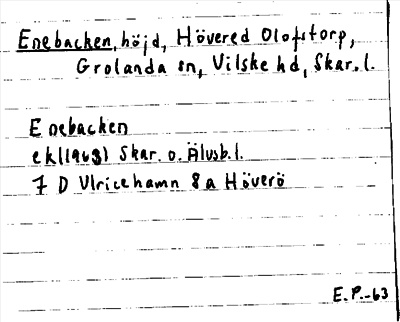 Enebacken, höjd, Hövered Olofstorp,
Grolanda sn, Vilske hd, Skar. l.
Enebacken
ek (1963) Skar. o. Älvsb. l.
7 D Ulricehamn 8 a Höverö
E. P. -63